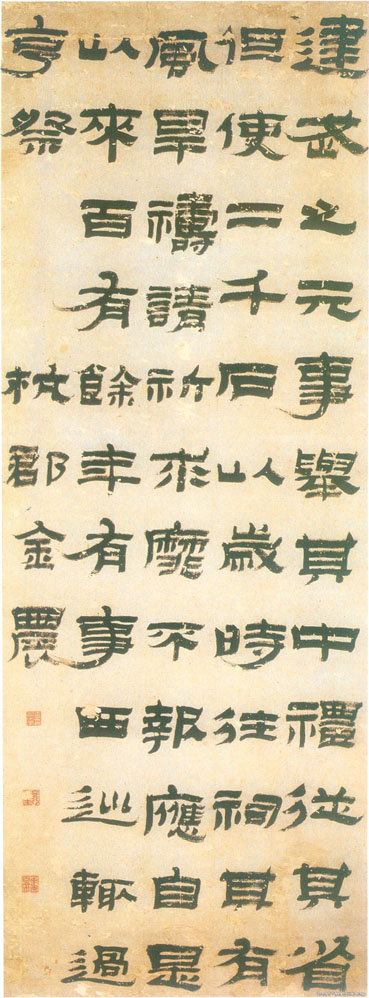 建武之元事舉其中禮從其省
但使二千石以歲時往祠其有
風旱禱請祈求靡不報應自是
以來百有餘年有事西巡輒過
亨祭 杭郡金農